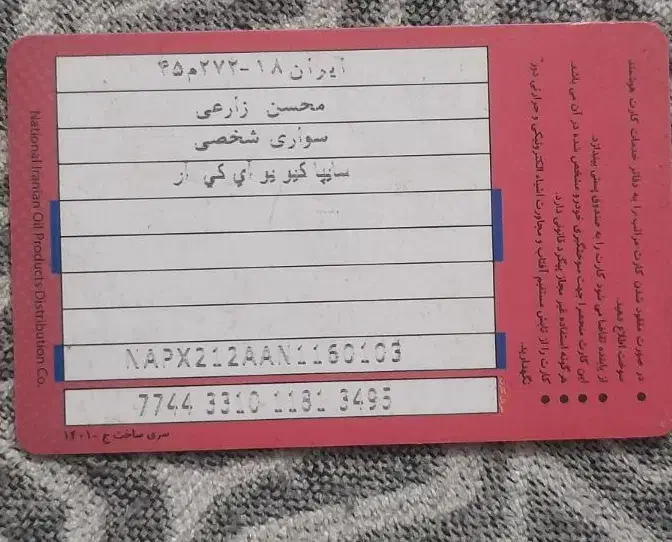 ایران ۱۸-۲۷۲م۴۵
محسن زارعی
سواری شخصی
سایپا کیو یو آی کی آر
NAPX212AAN1160103
7744 3310 1181 3495
سری ساخت ج -۱۴۰۱
National Iranian Oil Products Distribution Co.
● در صورت مفقود شدن کارت مراتب را به دفاتر خدمات کارت هوشمند
سوخت اطلاع دهید.
● از یابنده تقاضا می شود کارت را به صندوق پستی بیندازد.
● این کارت منحصرا جهت سوختگیری خودرو مشخص شده در آن می باشد
● هر گونه استفاده غیر مجاز پیگرد قانونی دارد.
● کارت را از تابش مستقیم آفتاب و مجاورت اشیاء الکترونیکی و حرارتی دور
نگهدارید.